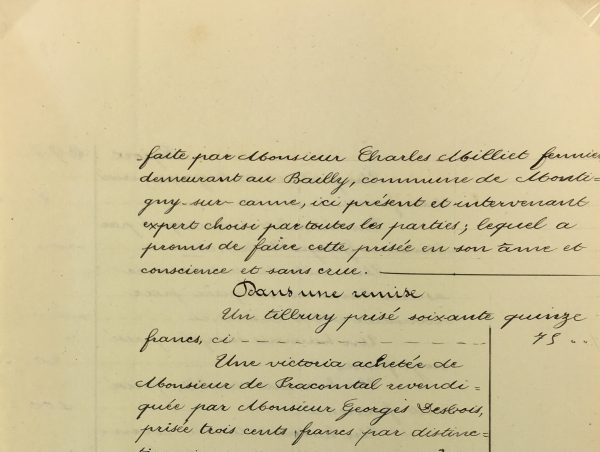 faite par Monsieur Charles Milliet fermier
demeurant au Bailly, commune de Monti=
gny-sur-canne, ici présent et intervenant
expert choisi par toutes les parties ; lequel a
promis de faire cette prisée en son âme et
conscience et sans crue.
Dans une remise
Un tilbury prisé soixante quinze
francs, ci 75 "
Une victoria achetée de
Monsieur de Pracomtal revendi=
quée par Monsieur Georges Desbois,
prisée trois cents francs par distinc=